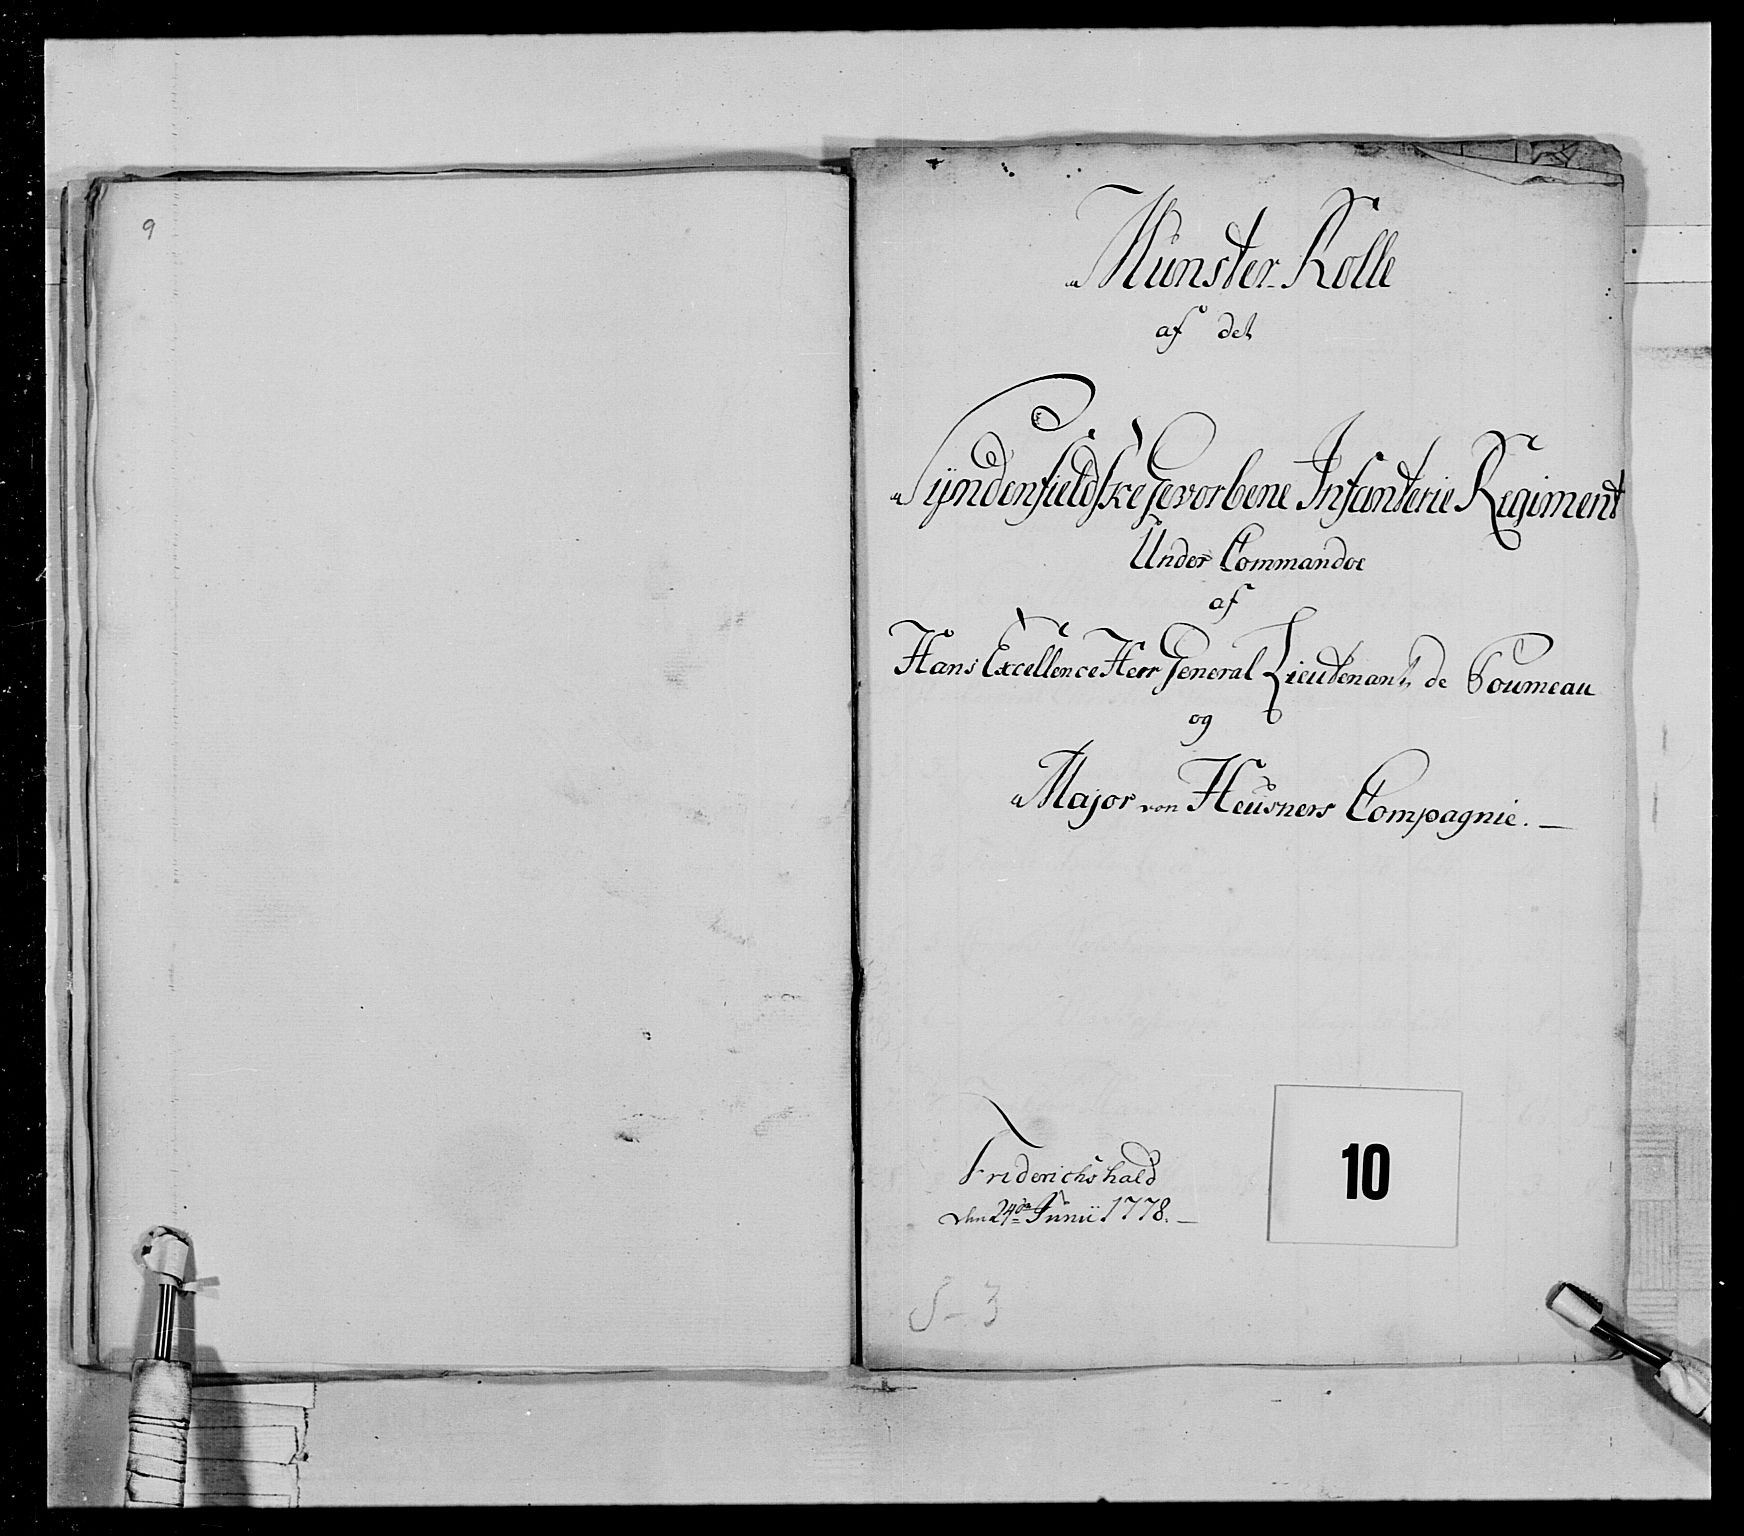 9
Münster-Rolle
af det
Sÿndenfieldske Gevorbene Infanterie Regiment
Under Commandoe
af
Hans Excellence Herr General Lieutenant, de Poumeau
og
Major von Heusners Compagnie. —
Friderichshald
den 24de Junii 1778. —
10
S-3